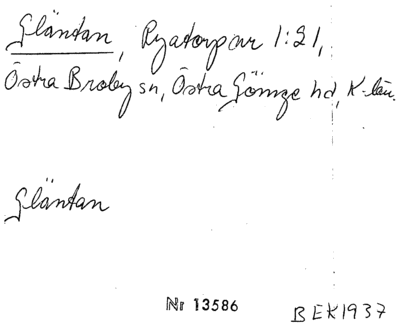 Gläntan, Ryatorpar 1:21,
Östra Broby sn, Östra Göinge hd, K-län.
Gläntan
Nr 13586
BEK1937